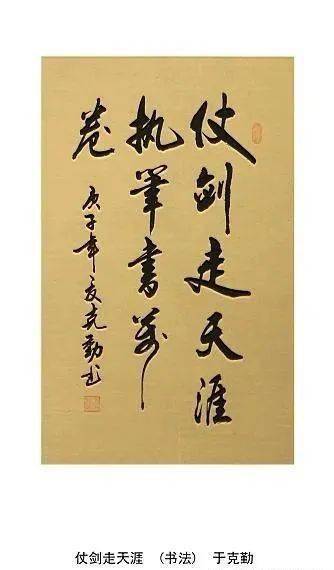 仗剑走天涯
执笔书万
卷
庚子年夏克勤书
仗剑走天涯 (书法) 于克勤